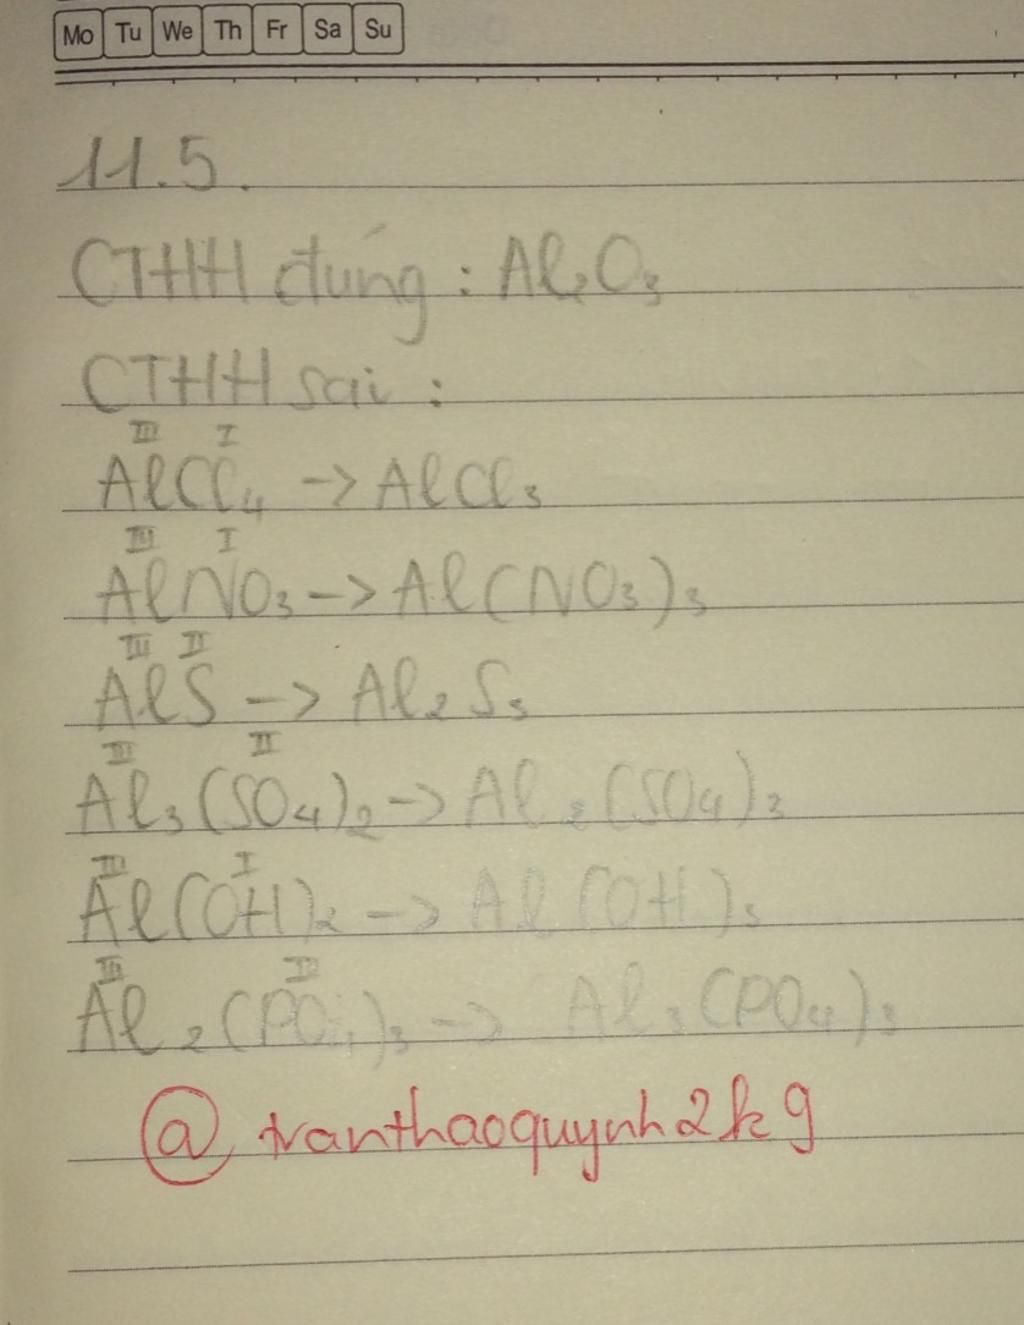 Mo Tu We Th Fr Sa Su
11.5.
CTHH đúng : Al₂O₃
CTHH sai :
III I
AlCl₄ -> AlCl₃
III I
AlNO₃ -> Al(NO₃)₃
III II
AlS -> Al₂S₃
III II
Al₃(SO₄)₂ -> Al₂(SO₄)₃
III I
Al(OH)₂ -> Al(OH)₃
III
Al₂(PO₄)₃ -> Al₃(PO₄)₃
@tranthaoquynh2k9